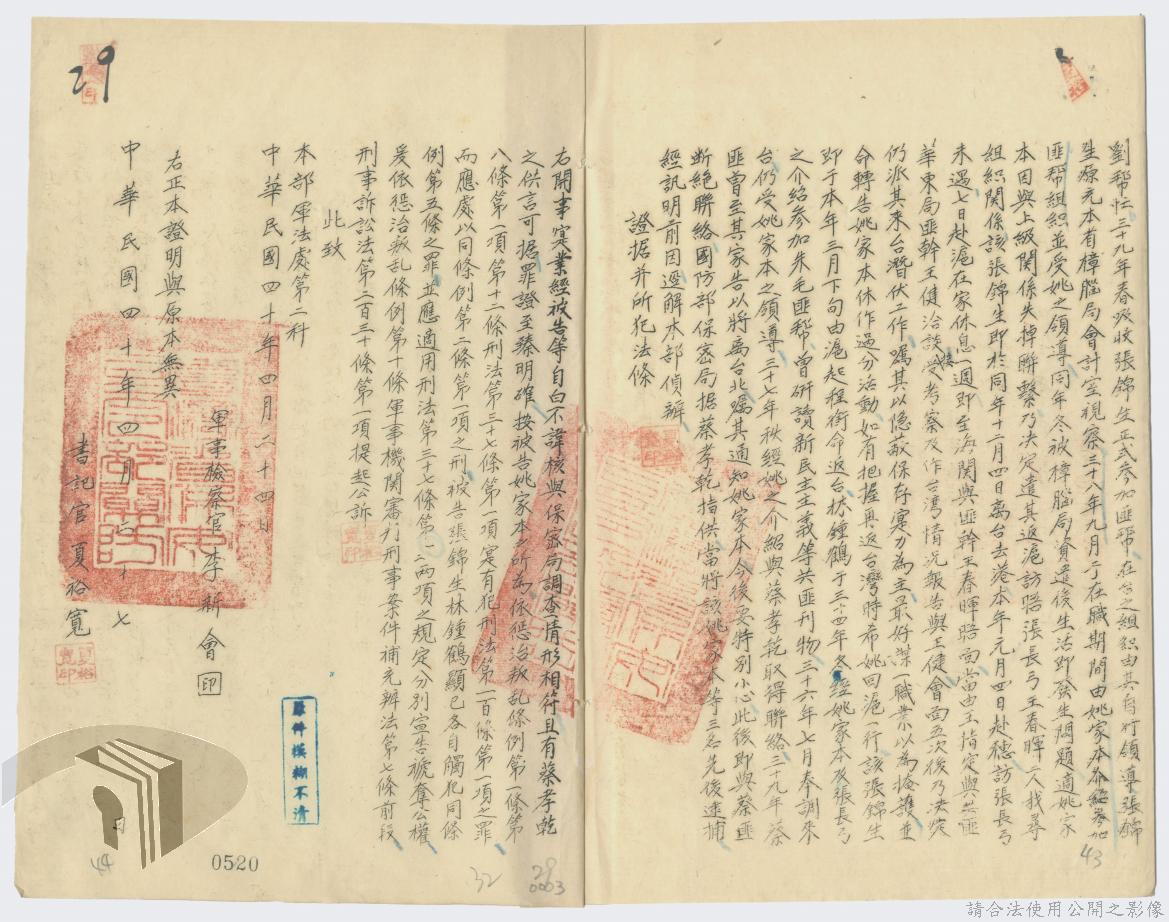 劉幫忙三十九年春吸收張錦生正式參加匪幫在台之組織由其自行領導張錦
生原充本省樟腦局會計室視察三十八年九月于在職期間由姚家本介紹參加
匪幫組織並受姚之領導同年冬被樟腦局資遣後生活即發生問題適姚家
本因與上級関係失掉聯繫乃決定遣其返滬訪晤張長弓王春暉二人找尋
組織関係該張錦生即於同年十二月四日离台去港本年元月四日赴穗訪張長弓
未遇七日赴滬在家休息一週即至海関與匪幹王春暉晤面當由王指定與共匪
華東局匪幹王健洽談接受考察及作台湾情况報告與王健會面五次後乃決定
仍派其來台潛伏工作嘱其以隐蔽保存实力為主最好謀一職業以為掩護並
命轉告姚家本休作過分活動如有把握再返台灣時希姚回滬一行該張錦生
即于本年三月下旬由滬起程銜命返台林鍾鶴于三十四年冬經姚家本及張長弓
之介紹參加朱毛匪幫曾研讀新民主主義等共匪刊物三十六年七月奉調來
台仍受姚家本之領導三十七年秋經姚之介紹與蔡孝乾取得聯絡三十九年蔡
匪曾至其家告以將离台北嘱其通知姚家本今後要特别小心此後即與蔡匪
断絕聯絡國防部保密局据蔡孝乾指供當將該姚家本等三名先後逮捕
經訊明前因遞解本部偵辦
證据并所犯法條
43
右開事寔業經被告等自白不諱核與保密局調查情形相符且有蔡孝乾
之供言可据罪證至臻明確按被告姚家本之所為依惩治叛乱條例第一條第
八條第一項第十二條刑法第三十七條第一項寔有犯刑法第一百條第一項之罪
而應處以同條例第二條第一項之刑被告張錦生林鍾鶴顯已各自觸犯同條
例第五條之罪並應適用刑法第三十七條第一二兩項之規定分別宣告褫奪公權
爰依惩治叛乱條例第十條軍事機関審判刑事案件補充辦法第七條前段
刑事訴訟法第二百三十條第一項提起公訴
此致
本部軍法處第二科
中華民國四十年四月二十四日
軍事檢察官李新會印
右正本證明與原本無異
中華民國四十年四月二十七日
書記官夏裕寬
29
原件模糊不清
44
0520
32
29
0003
請合法使用公開之影像